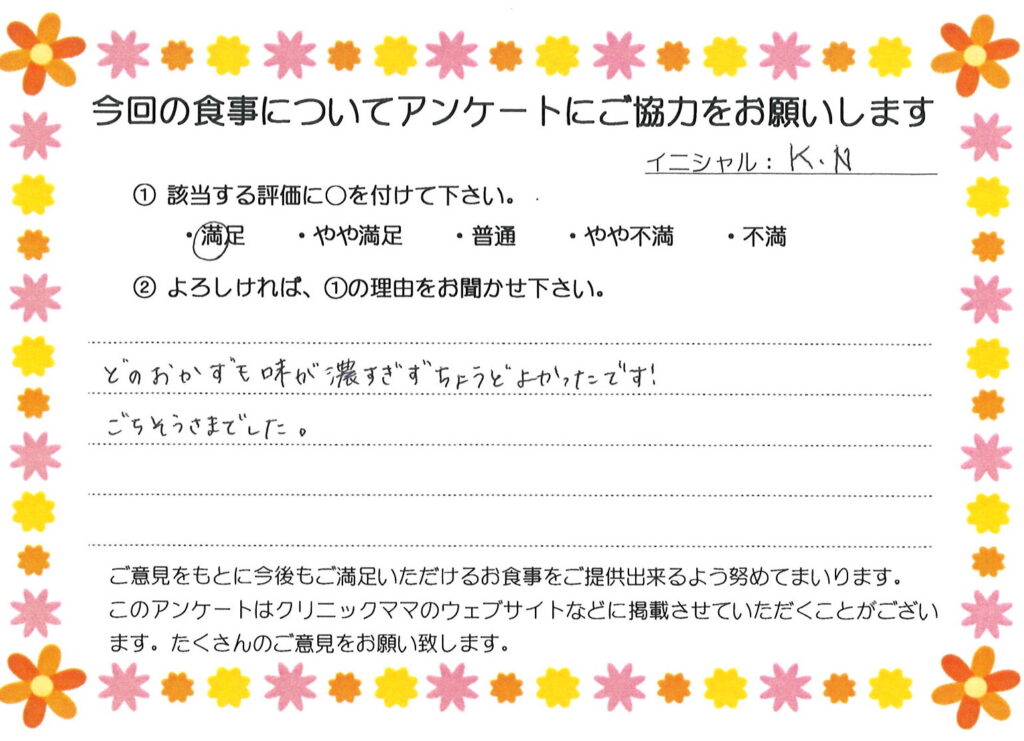 今回の食事についてアンケートにご協力をお願いします
イニシャル：K.N
① 該当する評価に〇を付けて下さい。
・満足 ・やや満足 ・普通 ・やや不満 ・不満
② よろしければ、①の理由をお聞かせ下さい。
どのおかずも味が濃すぎずちょうどよかったです!
ごちそうさまでした。
ご意見をもとに今後もご満足いただけるお食事をご提供出来るよう努めてまいります。
このアンケートはクリニックママのウェブサイトなどに掲載させていただくことがござい
ます。たくさんのご意見をお願い致します。